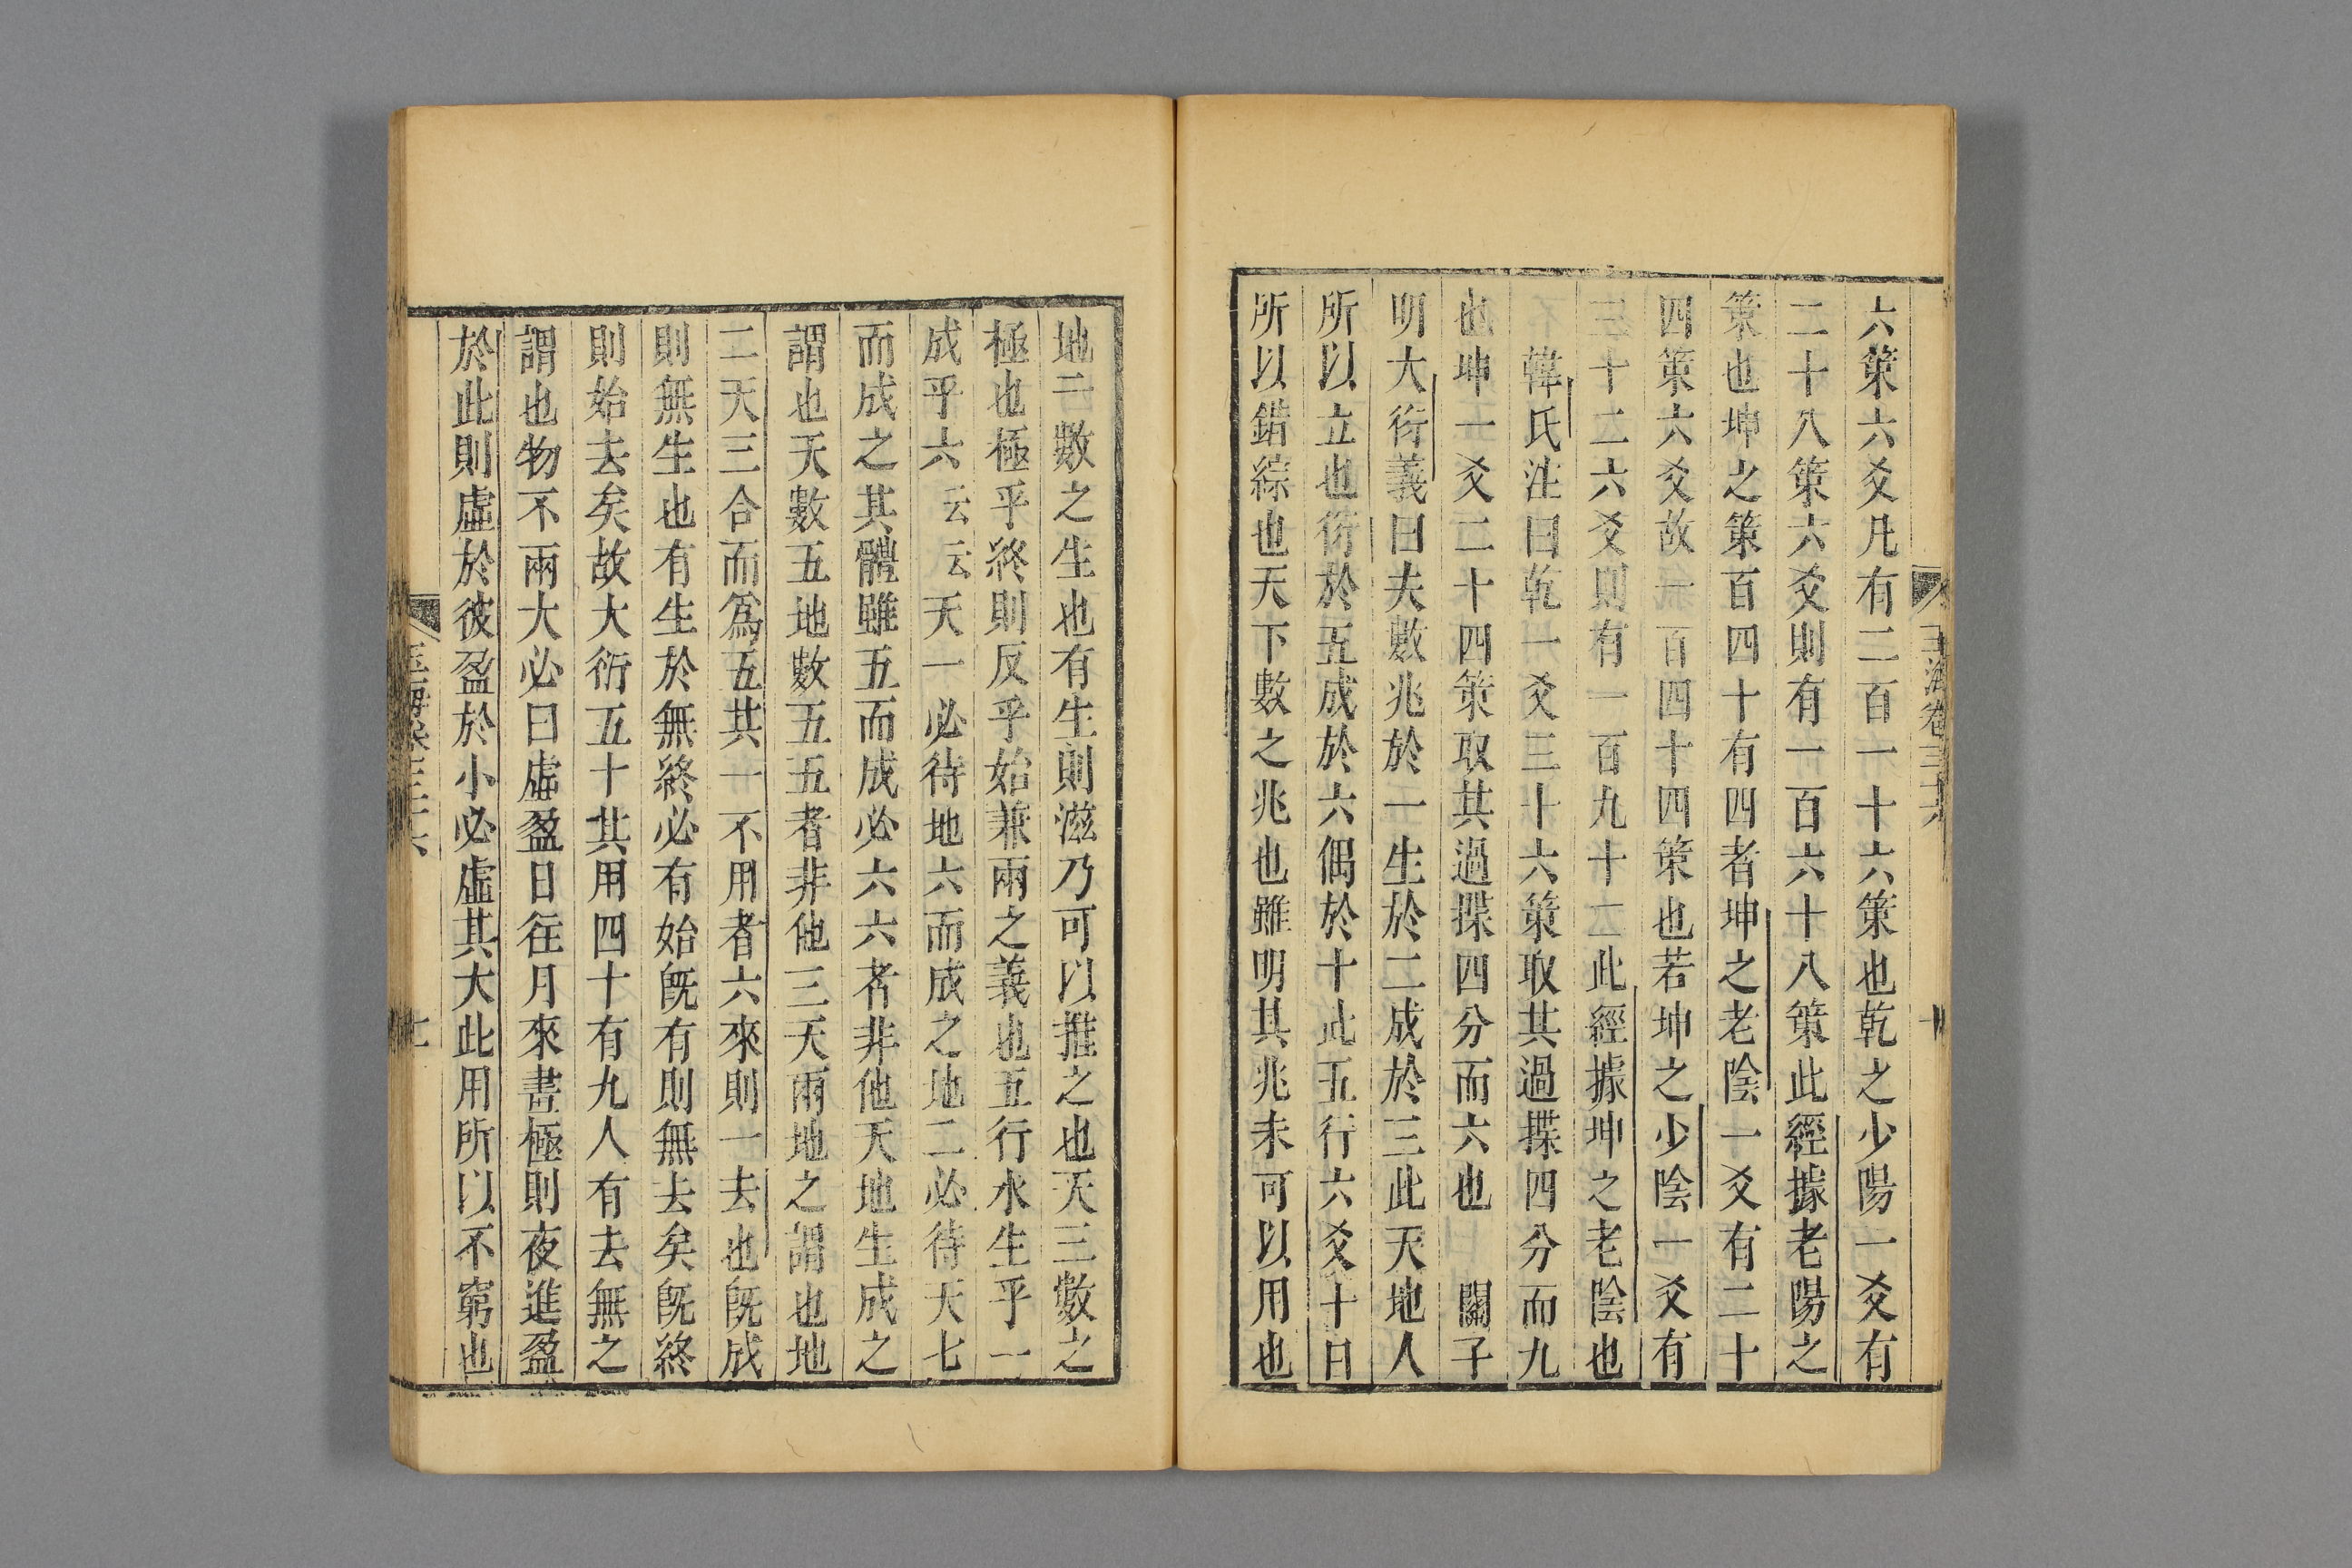 玉海卷三十六
六策六爻凡有二百一十六策也乾之少陽一爻有
二十八策六爻則有一百六十八策此經據老陽之
策也坤之策百四十有四者坤之老陰一爻有二十
四策六爻故一百四十四策也若坤之少陰一爻有
三十二六爻則有一百九十二此經據坤之老陰也
韓氏注曰乾一爻三十六策取其過揲四分而九
也坤一爻二十四策取其過揲四分而六也 關子
明大衍義曰夫數兆於一生於二成於三此天地人
所以立也衍於五成於六偶於十此五行六爻十日
所以錯綜也天下數之兆也雖明其兆未可以用也
地二數之生也有生則滋乃可以推之也天三數之
極也極乎終則反乎始兼兩之義也五行水生乎一
成乎六云云天一必待地六而成之地二必待天七
而成之其體雖五而成必六六者非他天地生成之
謂也天數五地數五五者非他三天兩地之謂也地
二天三合而爲五其一不用者六來則一去也旣成
則無生也有生於無終必有始旣有則無去矣旣終
則始去矣故大衍五十其用四十有九人有去無之
謂也物不兩大必曰虛盈日往月來晝極則夜進盈
於此則虛於彼盈於小必虛其大此用所以不窮也